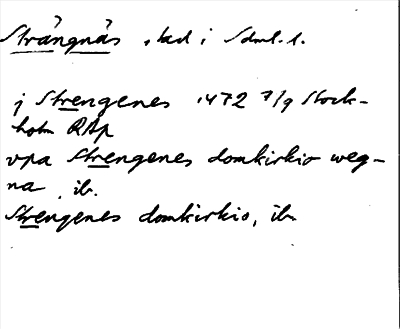 Strängnäs, stad i Sdml. l.
j Strengenes 1472 7/9 Stock-
holm RAp
vpa Strengenes domkirkio weg-
na, ib.
Strengenes domkirkio, ib.